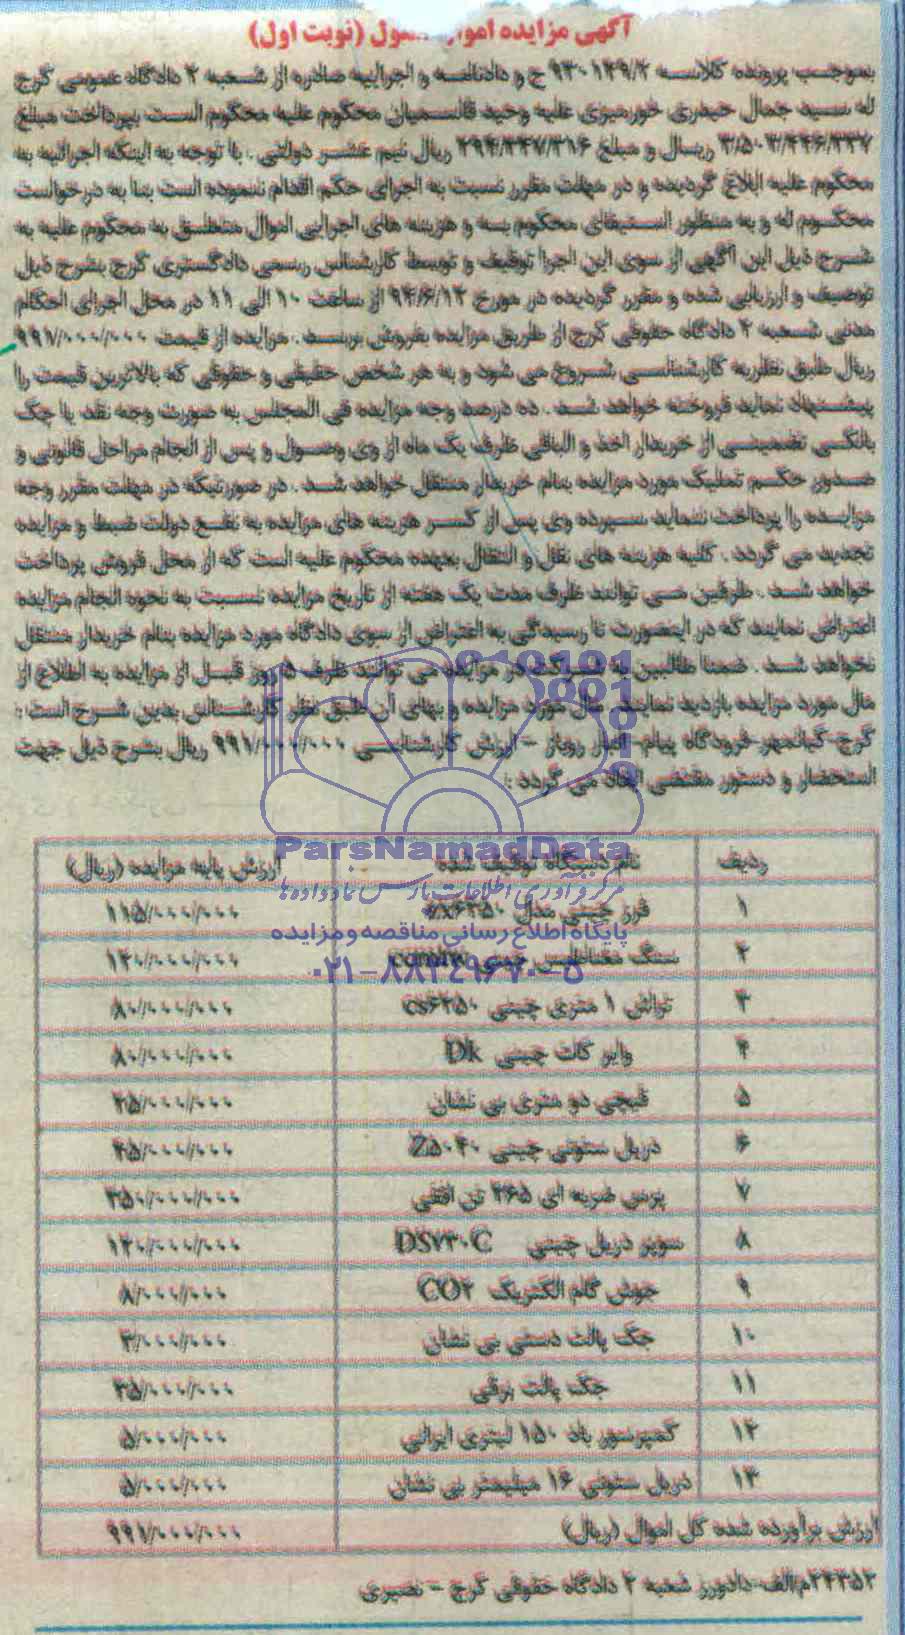 آگهی مزایده اموال منقول (نوبت اول)
بموجب پرونده کلاسه ۹۳۰۱۲۹/۲ ج و دادنامه و اجراییه صادره از شعبه ۲ دادگاه عمومی کرج
له سید جمال حیدری خورمیزی علیه وحید قاسمیان محکوم علیه محکوم است بپرداخت مبلغ
ریال و مبلغ ۲۹۴/۳۴۷/۳۱۶ ریال نیم عشر دولتی . با توجه به اینکه اجرائیه به
محکوم علیه ابلاغ گردیده و در مهلت مقرر نسبت به اجرای حکم اقدام ننموده است بنا به درخواست
محکوم له و به منظور استیفای محکوم به و هزینه های اجرایی اموال متعلق به محکوم علیه به
شرح ذیل این آگهی از سوی این اجرا توقیف و توسط کارشناس رسمی دادگستری کرج بشرح ذیل
توصیف و ارزیابی شده و مقرر گردیده در مورخ ۹۴/۶/۱۲ از ساعت ۱۰ الی ۱۱ در محل اجرای احکام
مدنی شعبه ۲ دادگاه حقوقی کرج از طریق مزایده بفروش برسد . مزایده از قیمت ۹۹۱/۰۰۰/۰۰۰
ریال طبق نظریه کارشناسی شروع می شود و به هر شخص حقیقی و حقوقی که بالاترین قیمت را
پیشنهاد نماید فروخته خواهد شد . ده درصد وجه مزایده فی المجلس به صورت وجه نقد یا چک
بانکی تضمینی از خریدار اخذ و الباقی ظرف یک ماه از وی وصول و پس از انجام مراحل قانونی و
صدور حکم تملیک مورد مزایده بنام خریدار منتقل خواهد شد . در صورتیکه در مهلت مقرر وجه
مزایده را پرداخت ننماید سپرده وی پس از کسر هزینه های مزایده به نفع دولت ضبط و مزایده
تجدید می گردد . کلیه هزینه های نقل و انتقال بعهده محکوم علیه است که از محل فروش پرداخت
خواهد شد . طرفین می توانند ظرف مدت یک هفته از تاریخ مزایده نسبت به نحوه انجام مزایده
اعتراض نمایند که در اینصورت تا رسیدگی به اعتراض از سوی دادگاه مورد مزایده بنام خریدار منتقل
نخواهد شد . ضمنا طالبین به شرکت در مزایده می توانند ظرف ۵ روز قبل از مزایده به اطلاع از
مال مورد مزایده بازدید نمایند. مال مورد مزایده و بهای آن طبق نظر کارشناس بدین شرح است :
کرج-کیانمهر-فرودگاه پیام-انبار روباز - ارزش کارشناسی ۹۹۱/۰۰۰/۰۰۰ ریال بشرح ذیل جهت
استحضار و دستور مقتضی ایفاد می گردد :
ردیف نام دستگاه توقیف شده ارزش پایه مزایده (ریال)
۱ فرز چینی مدل ۱۱۵/۰۰۰/۰۰۰
۲ سنگ مغناطیس چینی ۱۲۰/۰۰۰/۰۰۰
۳ تراش ۱ متری چینی cs۶۲۵۰ ۸۰/۰۰۰/۰۰۰
۴ وایر کات چینی Dk ۸۰/۰۰۰/۰۰۰
۵ قیچی دو متری بی نشان ۲۵/۰۰۰/۰۰۰
۶ دریل ستونی چینی Z۵۰۴۰ ۴۵/۰۰۰/۰۰۰
۷ پرس ضربه ای ۲۶۵ تن افقی ۳۵۰/۰۰۰/۰۰۰
۸ سوپر دریل چینی DS۷۳۰C ۱۲۰/۰۰۰/۰۰۰
۹ جوش گام الکتریک CO۲ ۸/۰۰۰/۰۰۰
۱۰ جک پالت دستی بی نشان ۳/۰۰۰/۰۰۰
۱۱ جک پالت برقی ۳۵/۰۰۰/۰۰۰
۱۲ کمپرسور باد ۱۵۰ لیتری ایرانی ۵/۰۰۰/۰۰۰
۱۳ دریل ستونی ۱۶ میلیمتر بی نشان ۵/۰۰۰/۰۰۰
ارزش برآورده شده کل اموال (ریال) ۹۹۱/۰۰۰/۰۰۰
۲۲۳۵۲/م/الف-دادورز شعبه ۲ دادگاه حقوقی کرج - نصیری
ParsNamadData
مرکز فرآوری اطلاعات پارس نماد داده ها
پایگاه اطلاع رسانی مناقصه و مزایده
۰۲۱-۸۸۳۴۹۶۷۰-۵